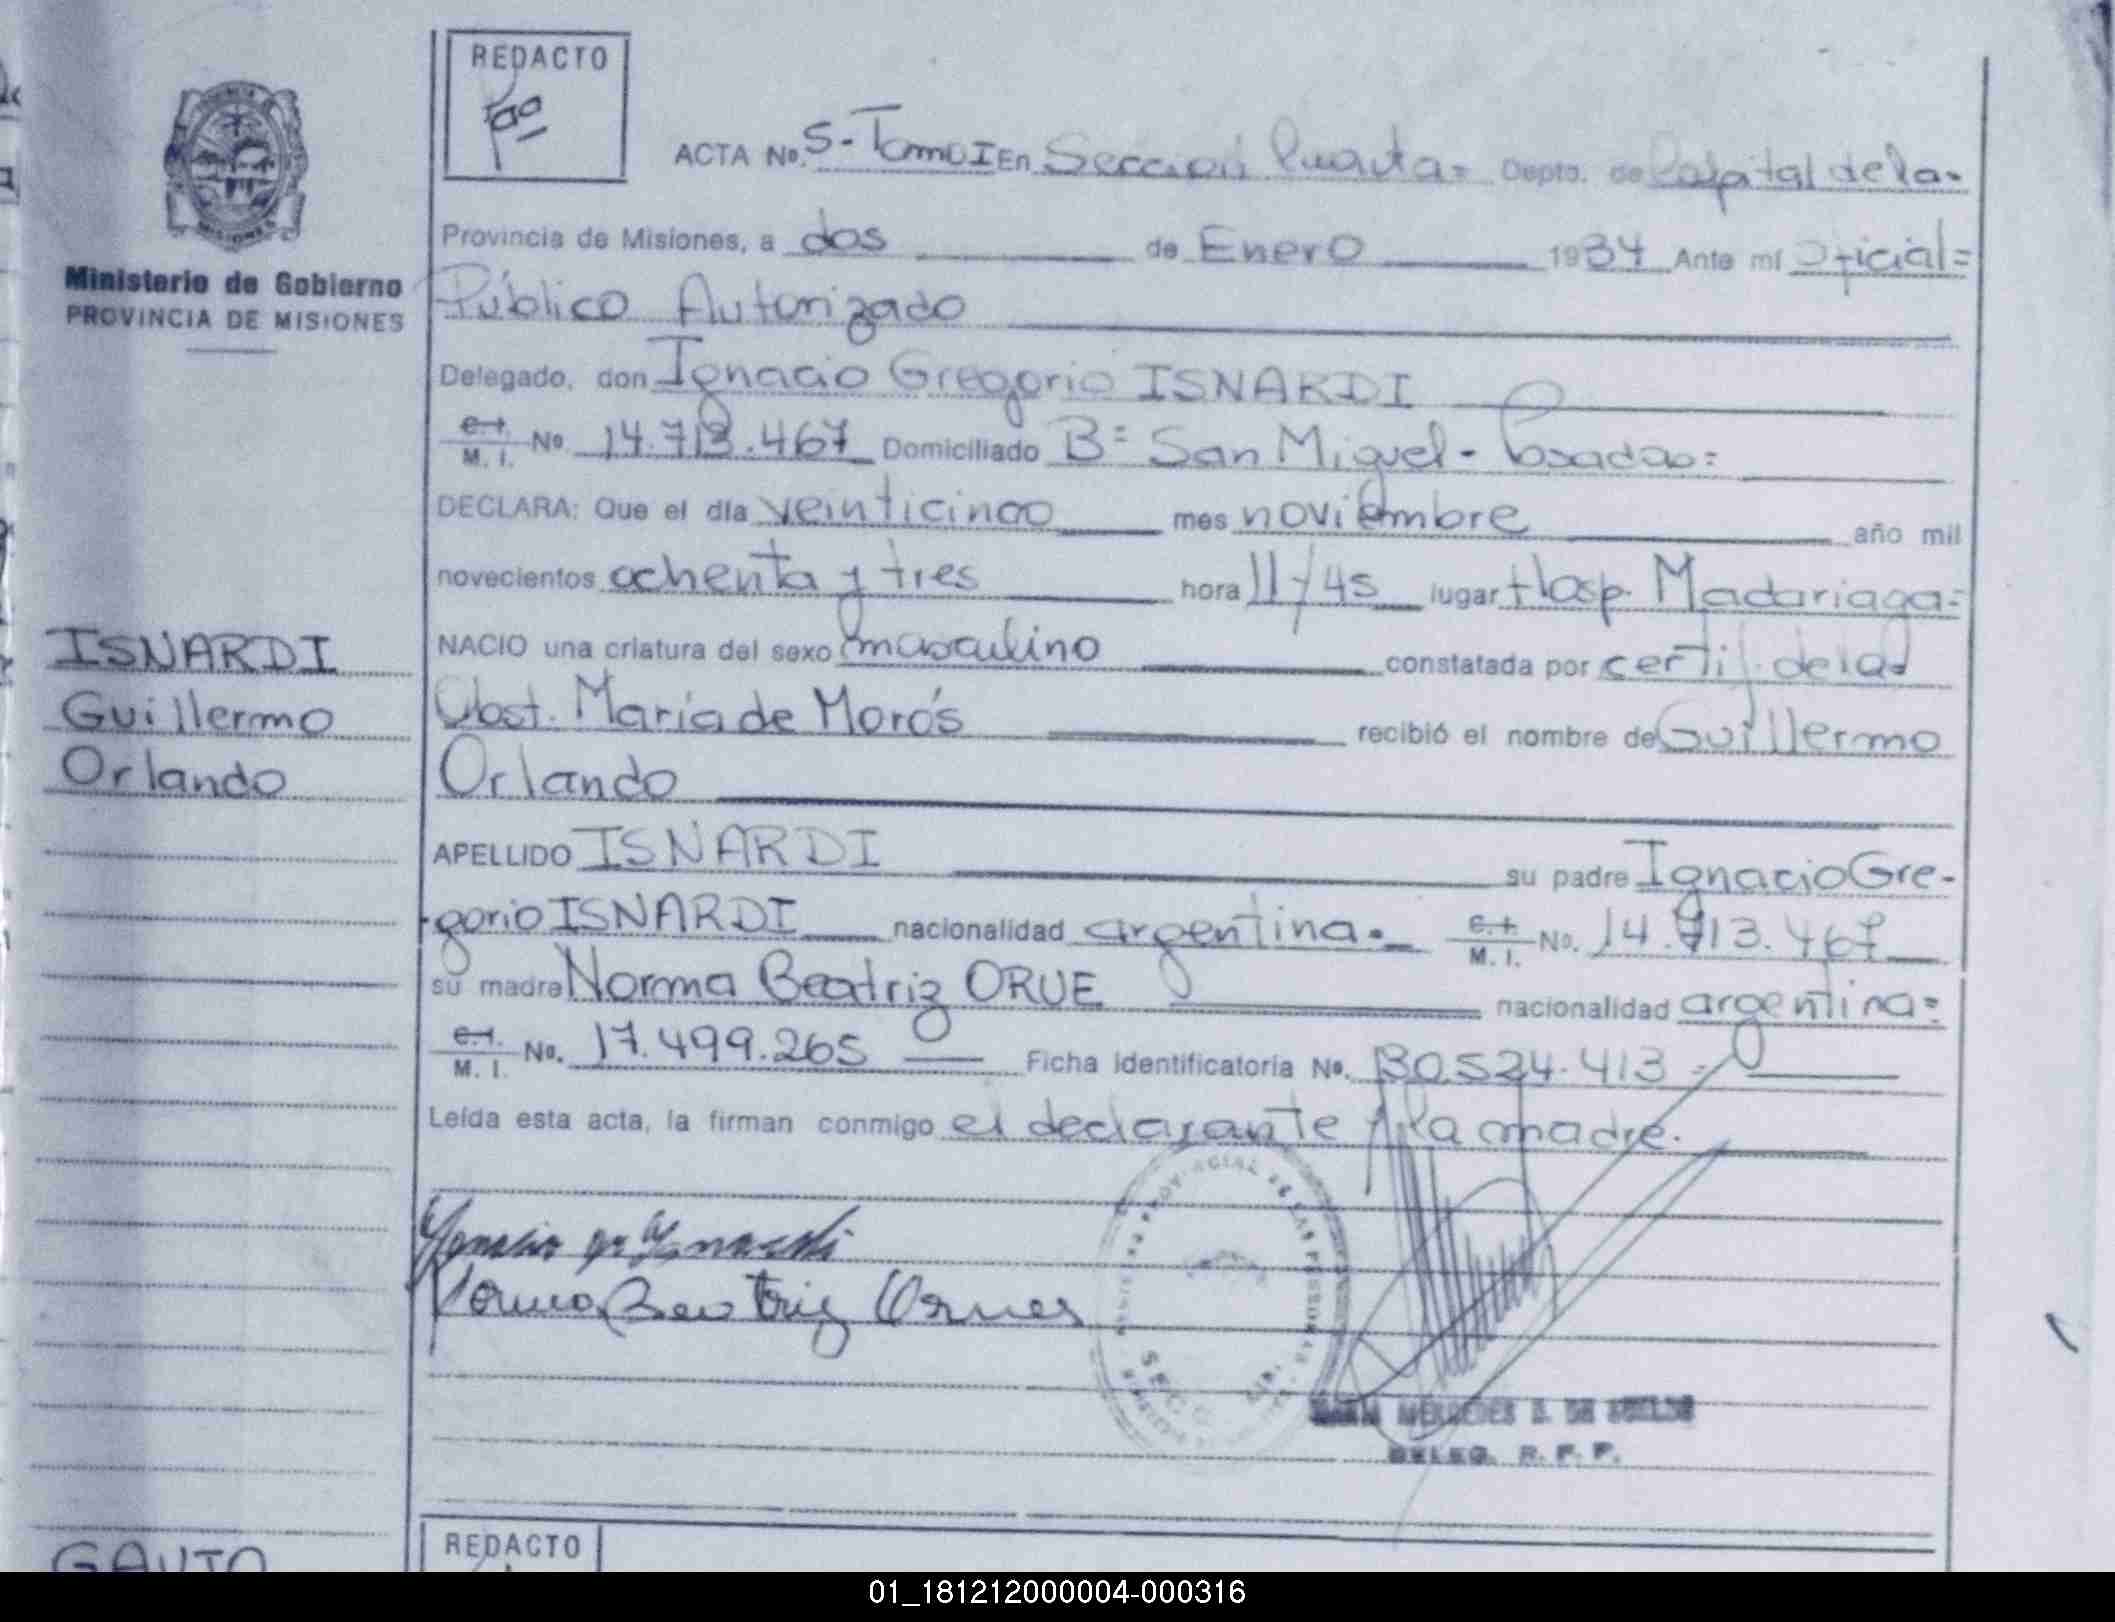 REDACTO
ACTA No. 5- Tomo I En Sección Cuarta= Depto. de Capital de la-
Provincia de Misiones, a dos de Enero 1984 Ante mí Oficial=
Ministerio de Gobierno
PROVINCIA DE MISIONES
Público Autorizado
Delegado, don Ignacio Gregorio ISNARDI
C.I. M. I. No. 14.713.467 Domiciliado B= San Miguel- Posadas=
DECLARA: Que el día veinticinco mes noviembre año mil
novecientos ochenta y tres hora 11/45 lugar Hosp. Madariaga=
NACIO una criatura del sexo masculino constatada por certif. de la
Obst. María de Morós recibió el nombre de Guillermo
Orlando
ISNARDI
Guillermo
Orlando
APELLIDO ISNARDI su padre Ignacio Gre-
gorio ISNARDI nacionalidad argentina.- C.I. M. I. No. 14.713.467
su madre Norma Beatriz ORUE nacionalidad argentina=
C.I. M. I. No. 17.499.265 Ficha identificatoria No. 30.524.413-
Leída esta acta, la firman conmigo el declarante y la madre.
MERCEDES
DELEG. R. P. P.
GAUTO
REDACTO
01_181212000004-000316